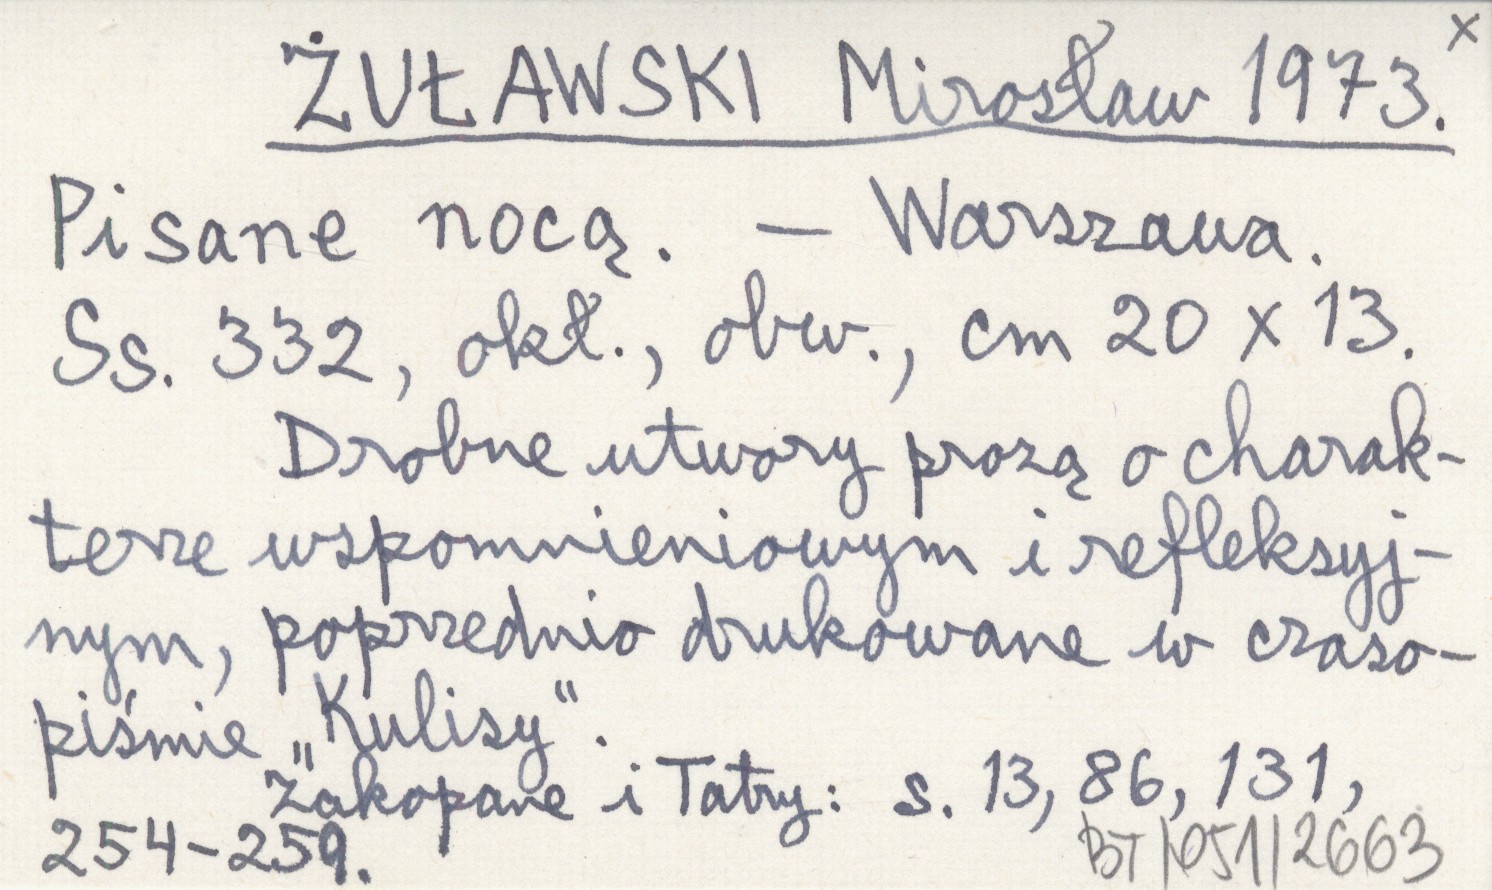 x
ŻUŁAWSKI Mirosław 1973.
Pisane nocą. — Warszawa.
Ss. 332, okł., obw., cm 20 x 13.
Drobne utwory prozą o charak-
terze wspomnieniowym i refleksyj-
nym, poprzednio drukowane w czaso-
piśmie „Kulisy“.
Zakopane i Tatry: s. 13, 86, 131,
254-259.
BT/051/2663